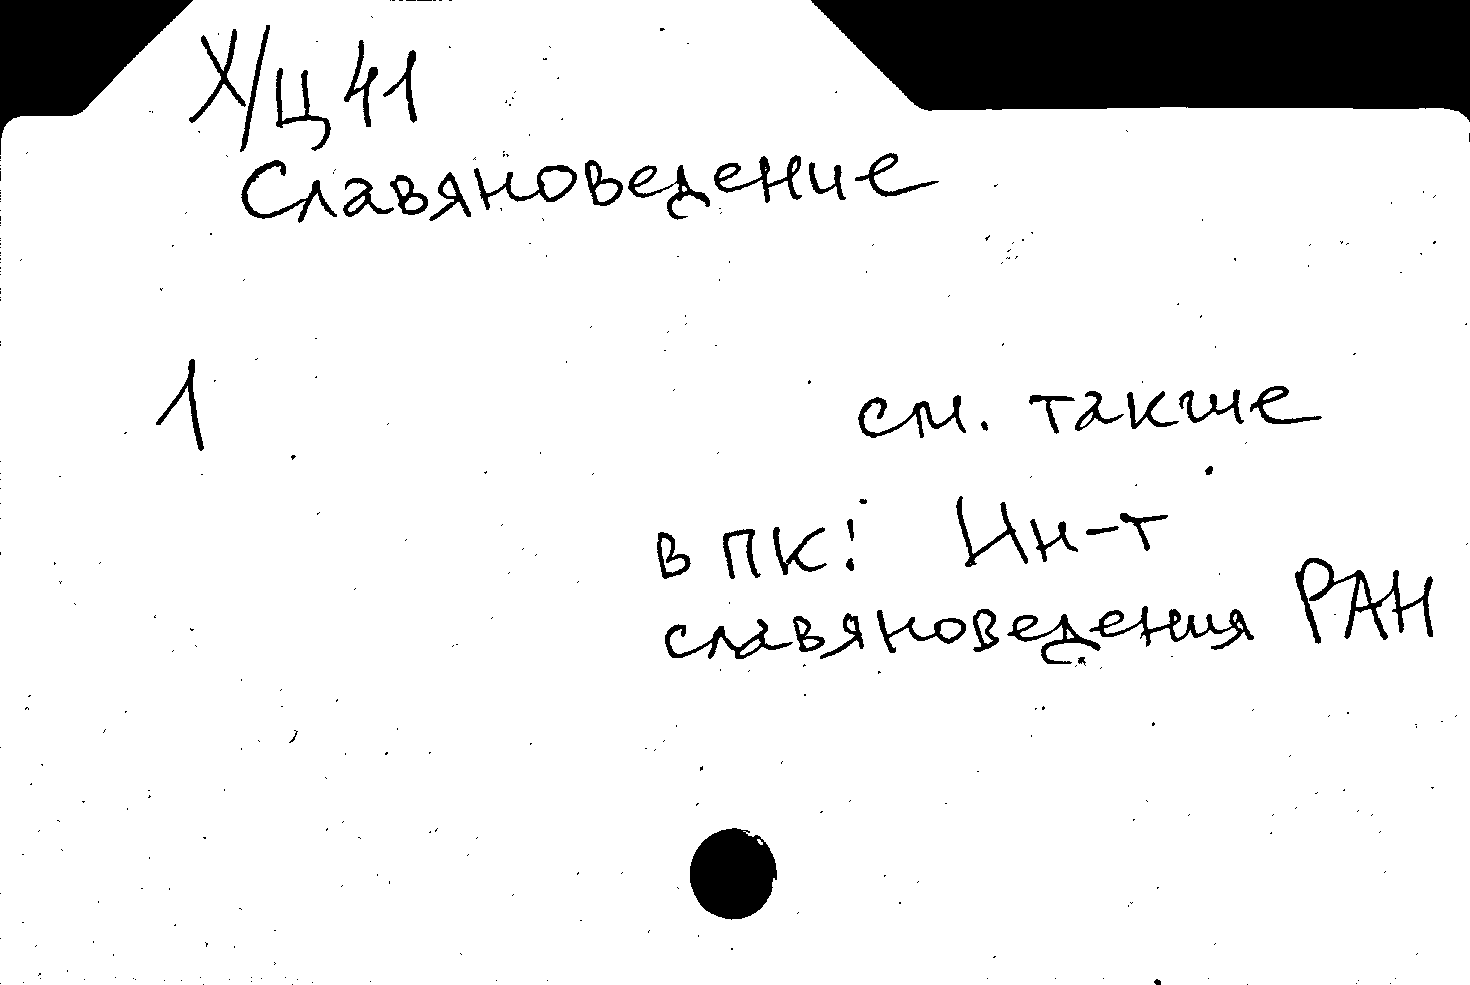 Х/Ц 41
Славяноведение
1 см. также
в ПК: Ин-т
славяноведения РАН